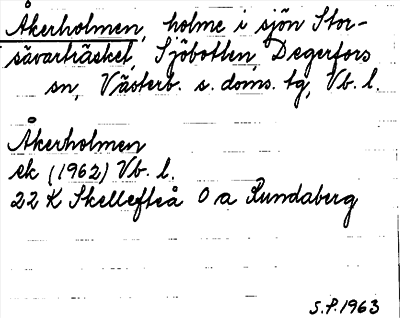 Åkerholmen, holme i sjön Stor-
sävarträsket, Sjöbotten, Degerfors
sn, Västerb. s. doms. tg, Vb. l.
Åkerholmen
ek (1962) Vb. l.
22 K Skellefteå 0 a Rundaberg
S.P. 1963